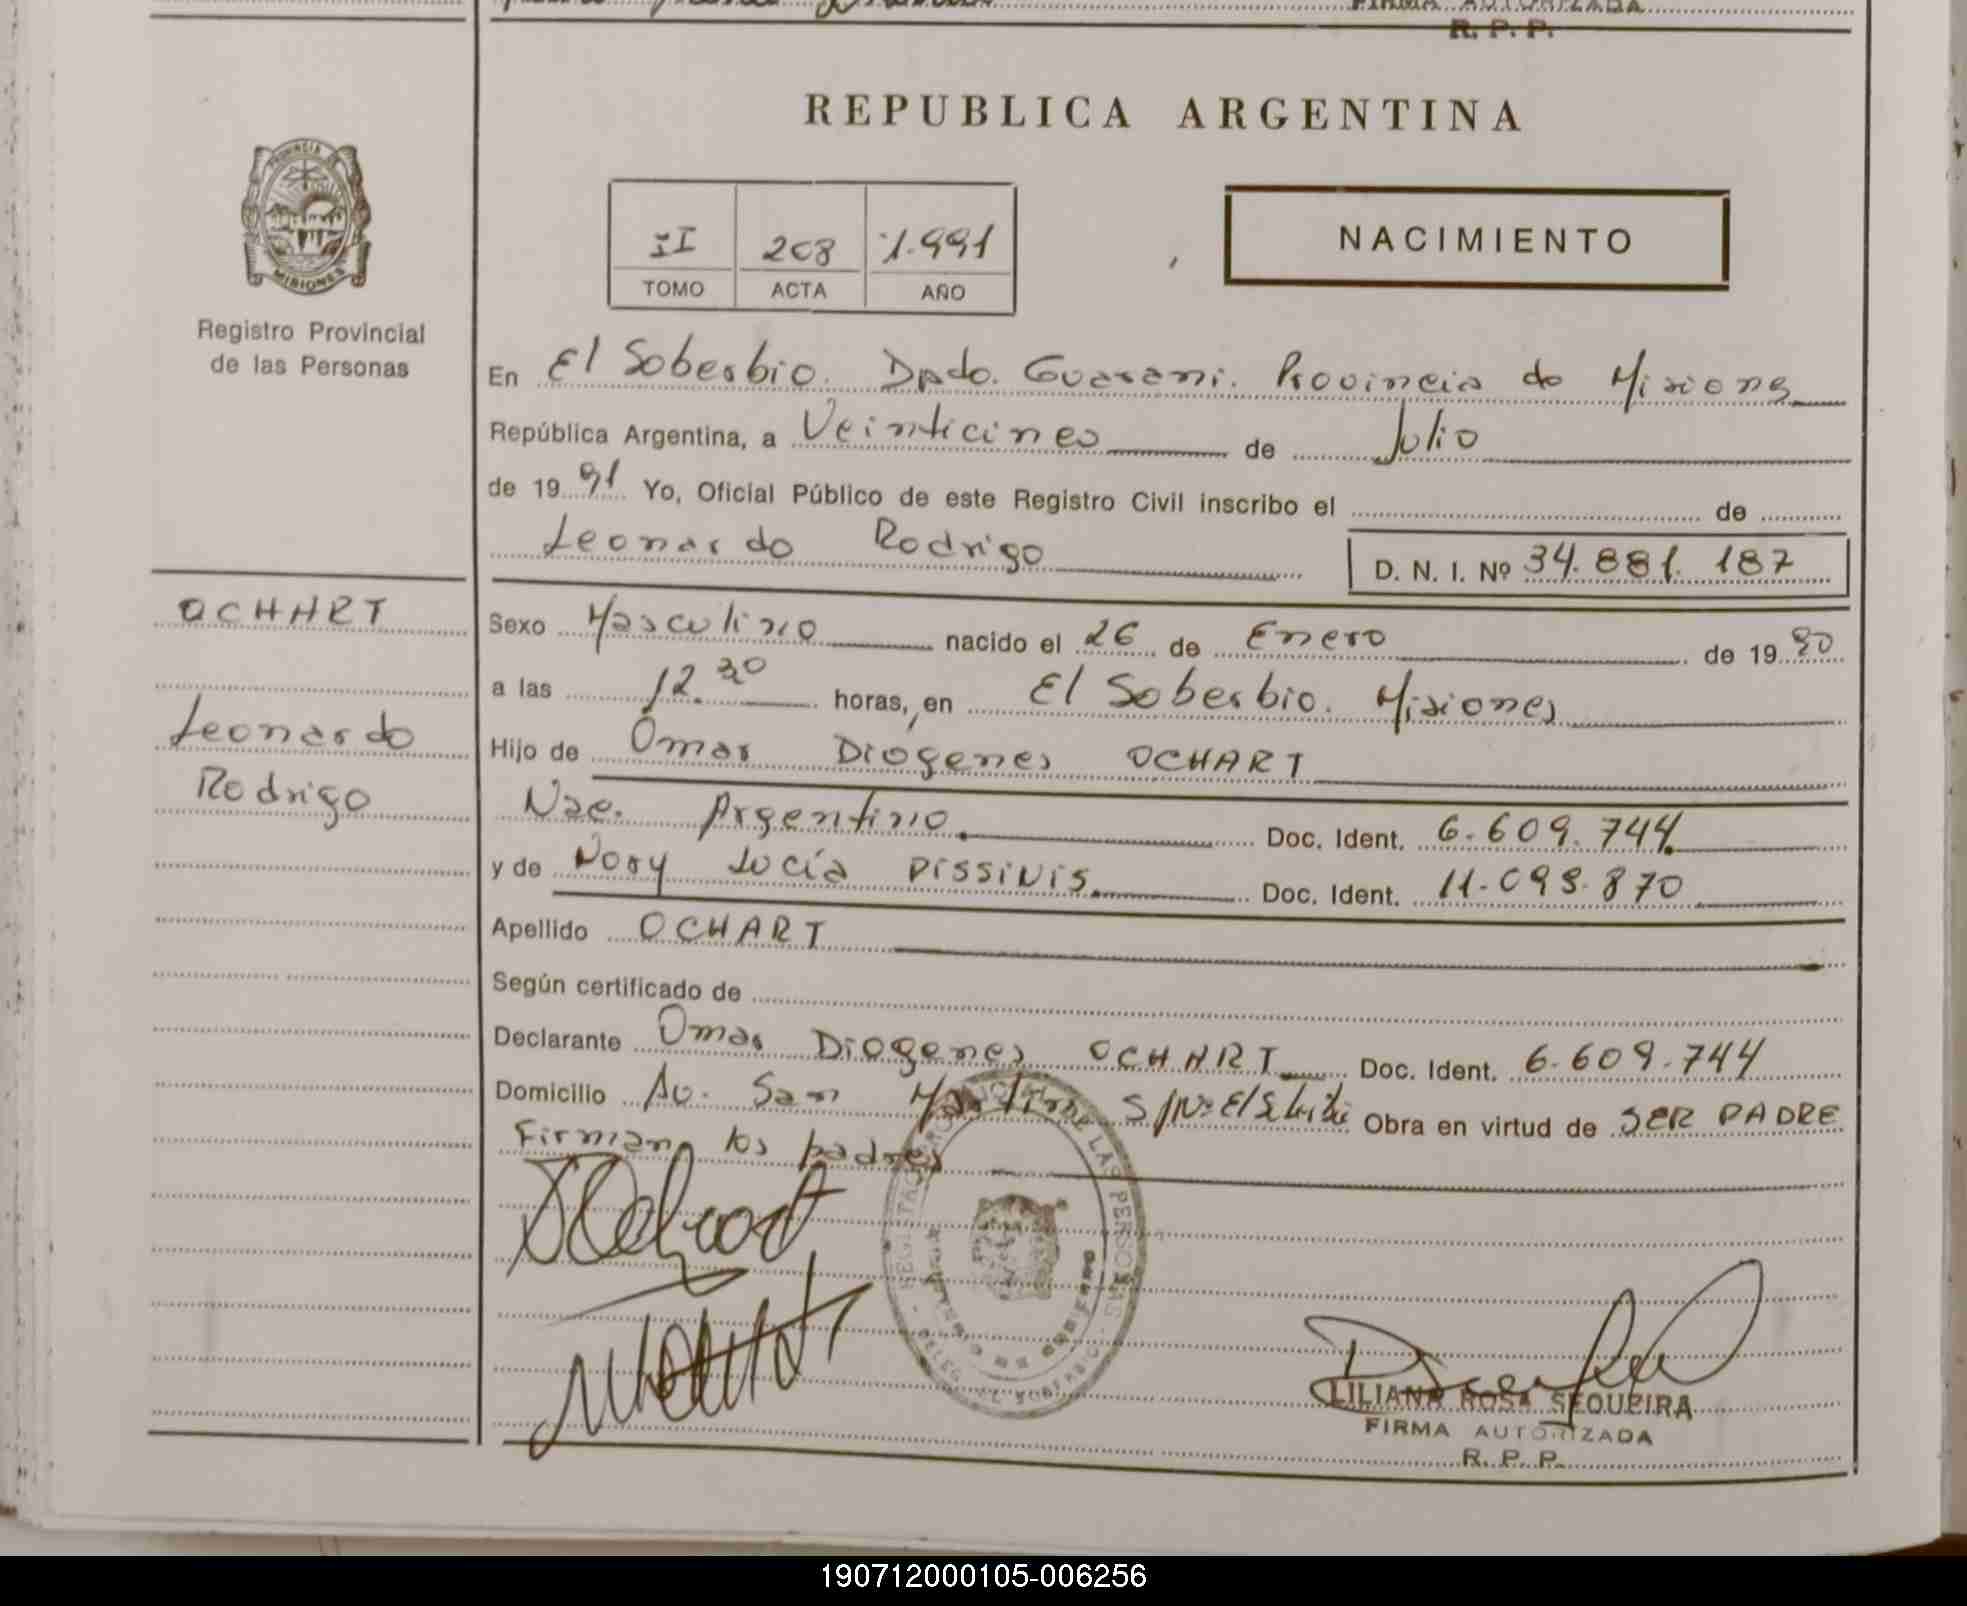 FIRMA AUTORIZADA
R. P. P.
REPUBLICA ARGENTINA
PROVINCIA DE
MISIONES
Registro Provincial
de las Personas
II 208 1.991
TOMO ACTA AÑO
NACIMIENTO
En El Soberbio. Dpdo. Guarani. Provincia de Misiones
República Argentina, a Veinticinco de Julio
de 1991 Yo, Oficial Público de este Registro Civil inscribo el de
Leonardo Rodrigo D. N. I. Nº 34.881.187
OCHART
Leonardo
Rodrigo
Sexo Masculino nacido el 26 de Enero de 19
a las 12.30 horas, en El Soberbio. Misiones
Hijo de Omar Diogenes OCHART
Nac. Argentino. Doc. Ident. 6.609.744
y de Nory Lucía DISSINIS Doc. Ident. 11.093.870
Apellido OCHART
Según certificado de
Declarante Omar Diogenes OCHART Doc. Ident. 6.609.744
Domicilio Av. San Martin S/Nº El Soberbio Obra en virtud de SER PADRE
Firman los padres
REGISTRO PROVINCIAL DE LAS PERSONAS
DELEG. EL SOBERBIO
LILIANA ROSA SEQUEIRA
FIRMA AUTORIZADA
R. P. P.
190712000105-006256